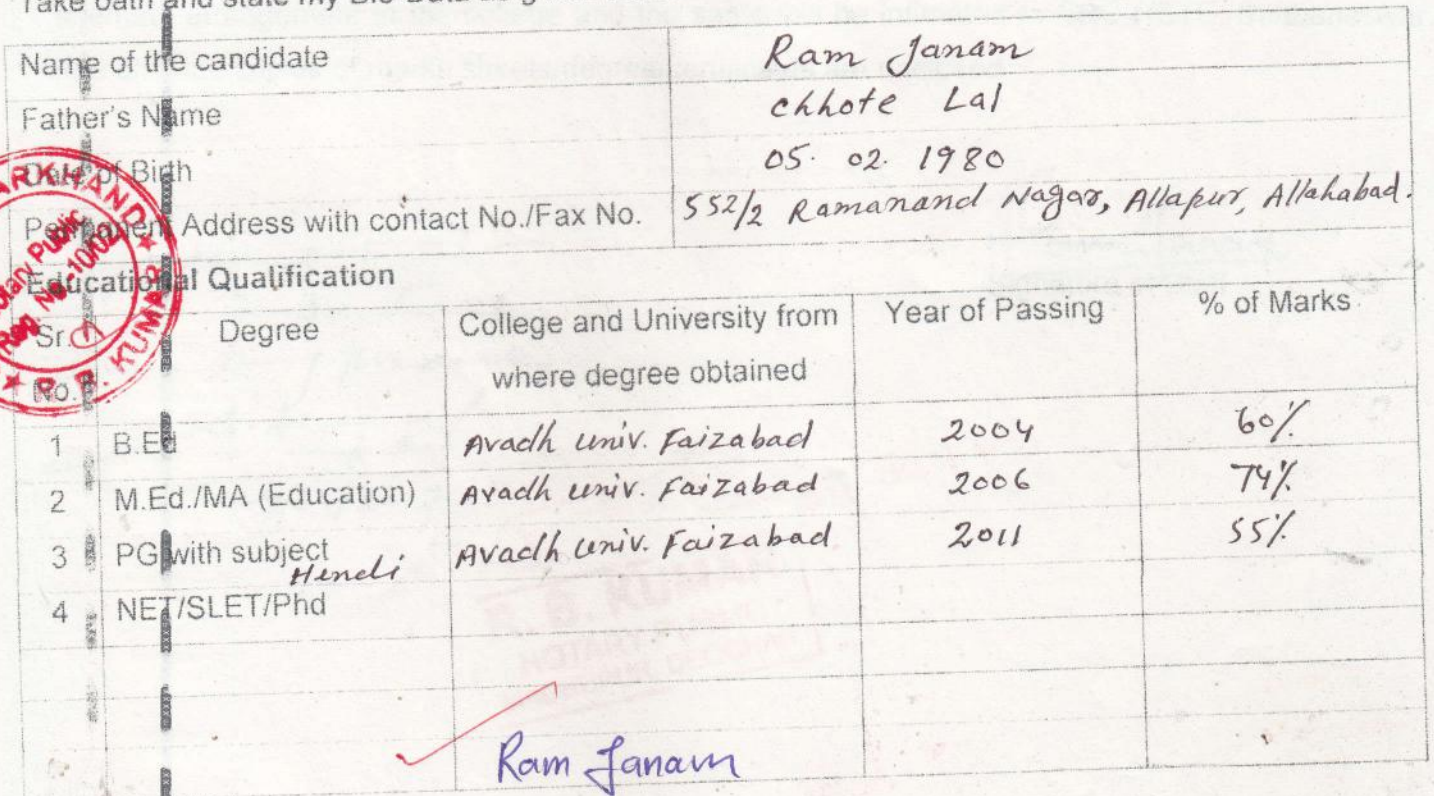 Take oath and state my Bio-Data
Name of the candidate Ram Janam
Father's Name Chhote Lal
Date of Birth 05. 02. 1980
Permanent Address with contact No./Fax No. 552/2 Ramanand Nagar, Allapur, Allahabad.
Educational Qualification
Sr. No. Degree College and University from where degree obtained Year of Passing % of Marks
1 B.Ed Avadh univ. Faizabad 2004 60%
2 M.Ed./MA (Education) Avadh univ. Faizabad 2006 74%
3 PG with subject Hendi Avadh univ. Faizabad 2011 55%
4 NET/SLET/Phd
Ram Janam
JHARKHAND
Notary Public
Reg. No.
P. B. KUMAR
KUMAR
NOTARY